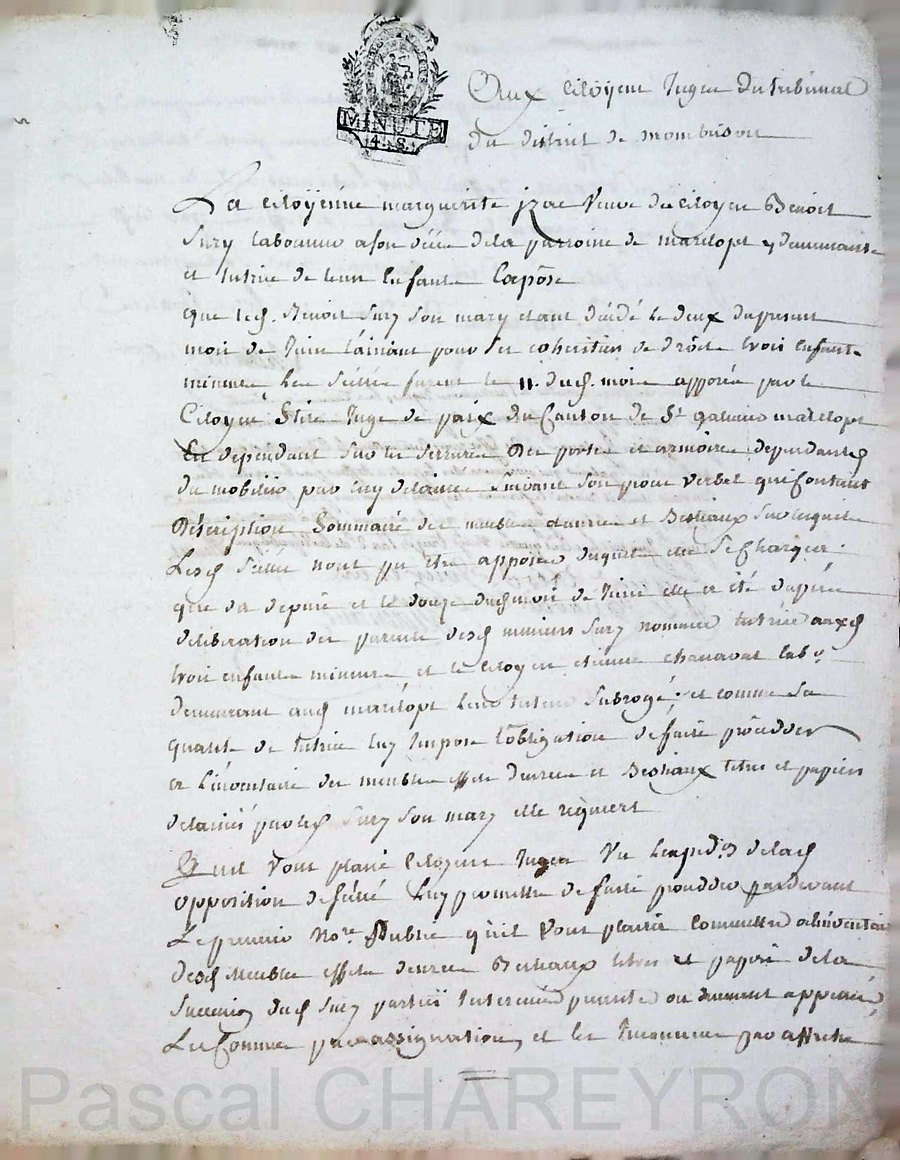 MINUTE
4. S.
Aux Citoyens Juges du tribunal
du district de montbrison
La Citoyenne marguerite Veuve du Citoyen Benoit
Sury laboureur a son décès de la parroisse de marclopt y demeurante
et tutrice de leurs Enfants Expose
que led. Benoit Sury son mary etant décédé le deux du present
mois de Juin laissant pour ses cohéritiers de droit trois Enfants
mineurs Les Scellés furent le 11. dud. mois apposés par le
Citoyen Juge de paix du Canton de St galmier marclopt
En dependant sur les serrures des portes et armoires dependants
du mobilier par luy delaissé suivant son procès verbal qui Contient
Description Sommaire des meubles danrées et Bestiaux sur lesquels
Lesd. Scellés n'ont pu être apposés desquels elle se Chargea
que depuis et le douze dud. mois de Juin elle a été d'après
délibération des parents desd. mineurs Sury nommée tutrice auxd.
trois enfants mineurs et le Citoyen etienne chanavat labr.
demeurant aud. marclopt leur tuteur Subrogé; et comme Sa
qualité de tutrice luy Impose l'obligation de faire procéder
a L'inventaire des meubles effets denrées et Bestiaux titres et papiers
delaissés par led. Sury Son mary elle requiert
Qu'il Vous plaise Citoyens Juges Vu de lad.
opposition de scellé Luy permettre de faire procéder pardevant
Le premier Nore. Public qu'il Vous plaira Commettre a l'inventaire
desd. Meubles effets denrées Bestiaux titres et papiers de la
Succession dud. Sury parties Interessées presentes ou duement appelées
Les Connues par assignation, et les Inconnues par affiche
Pascal CHAREYRON